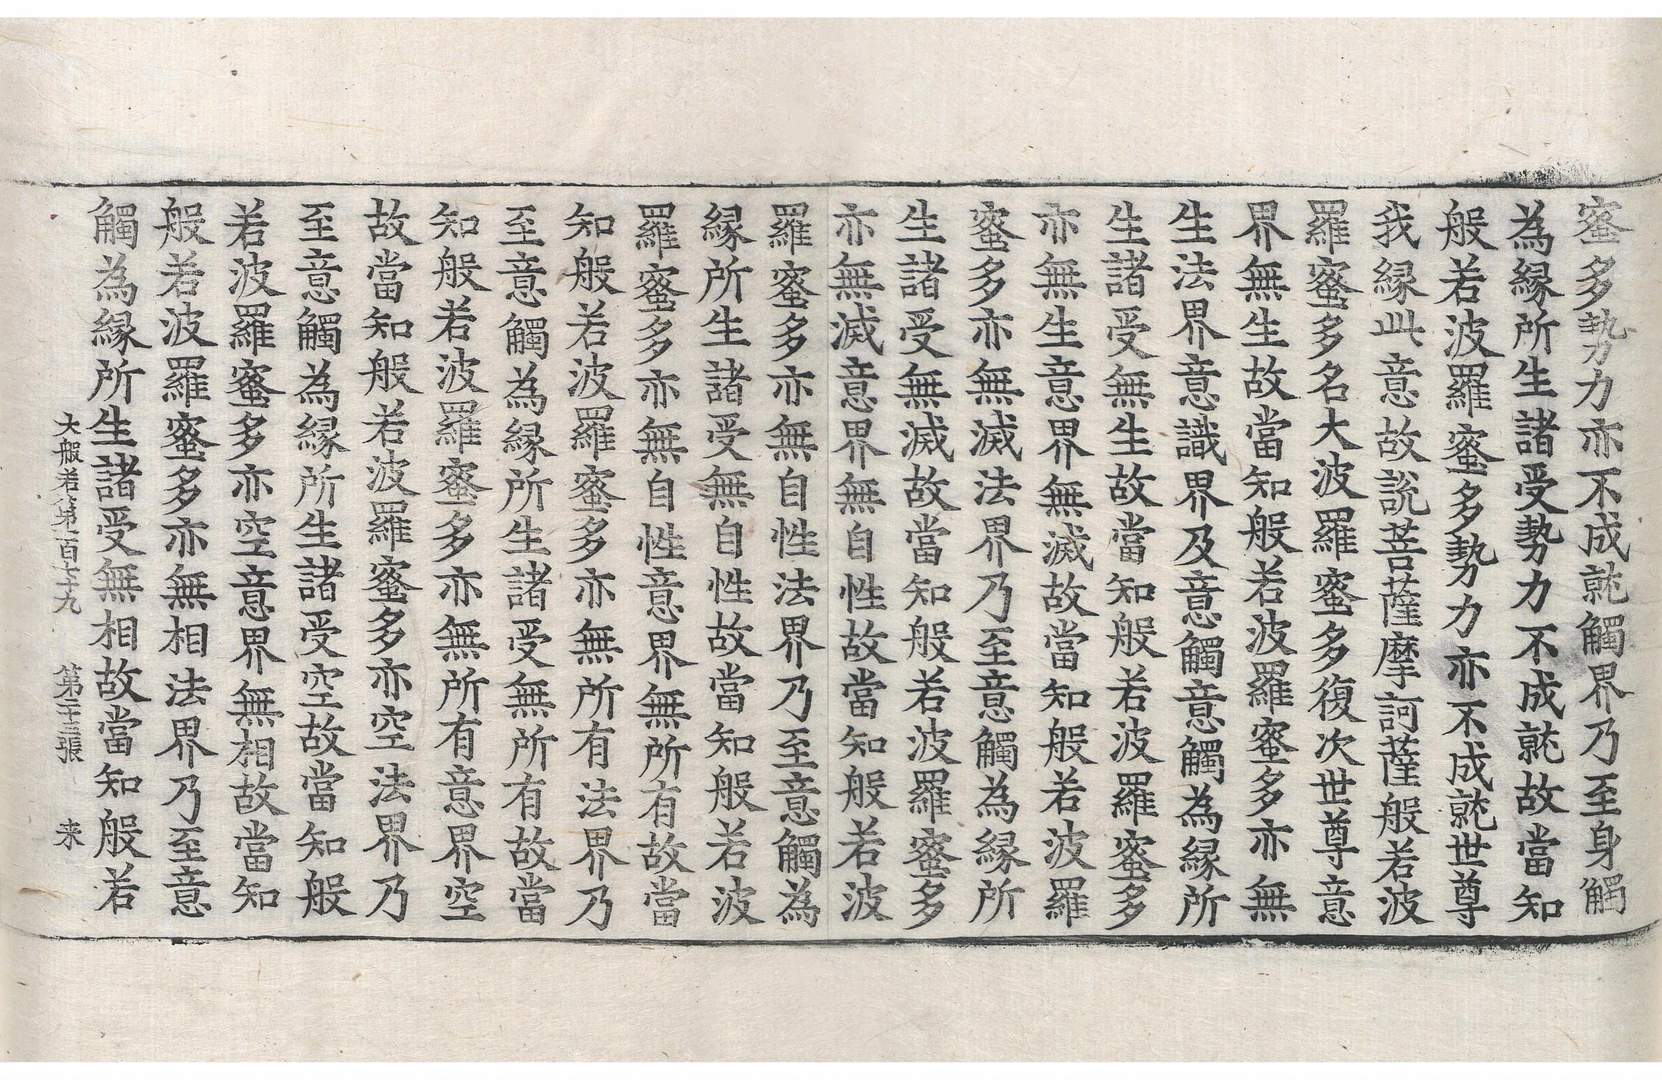 蜜多勢力亦不成就觸界乃至身觸
為縁所生諸受勢力不成就故當知
般若波羅蜜多勢力亦不成就世尊
我縁此意故說菩薩摩訶薩般若波
羅蜜多名大波羅蜜多復次世尊意
界無生故當知般若波羅蜜多亦無
生法界意識界及意觸意觸為縁所
生諸受無生故當知般若波羅蜜多
亦無生意界無滅故當知般若波羅
蜜多亦無滅法界乃至意觸為縁所
生諸受無滅故當知般若波羅蜜多
亦無滅意界無自性故當知般若波
羅蜜多亦無自性法界乃至意觸為
縁所生諸受無自性故當知般若波
羅蜜多亦無自性意界無所有故當
知般若波羅蜜多亦無所有法界乃
至意觸為縁所生諸受無所有故當
知般若波羅蜜多亦無所有意界空
故當知般若波羅蜜多亦空法界乃
至意觸為縁所生諸受空故當知般
若波羅蜜多亦空意界無相故當知
般若波羅蜜多亦無相法界乃至意
觸為縁所生諸受無相故當知般若
大般若第一百七十九 第二十三張 来